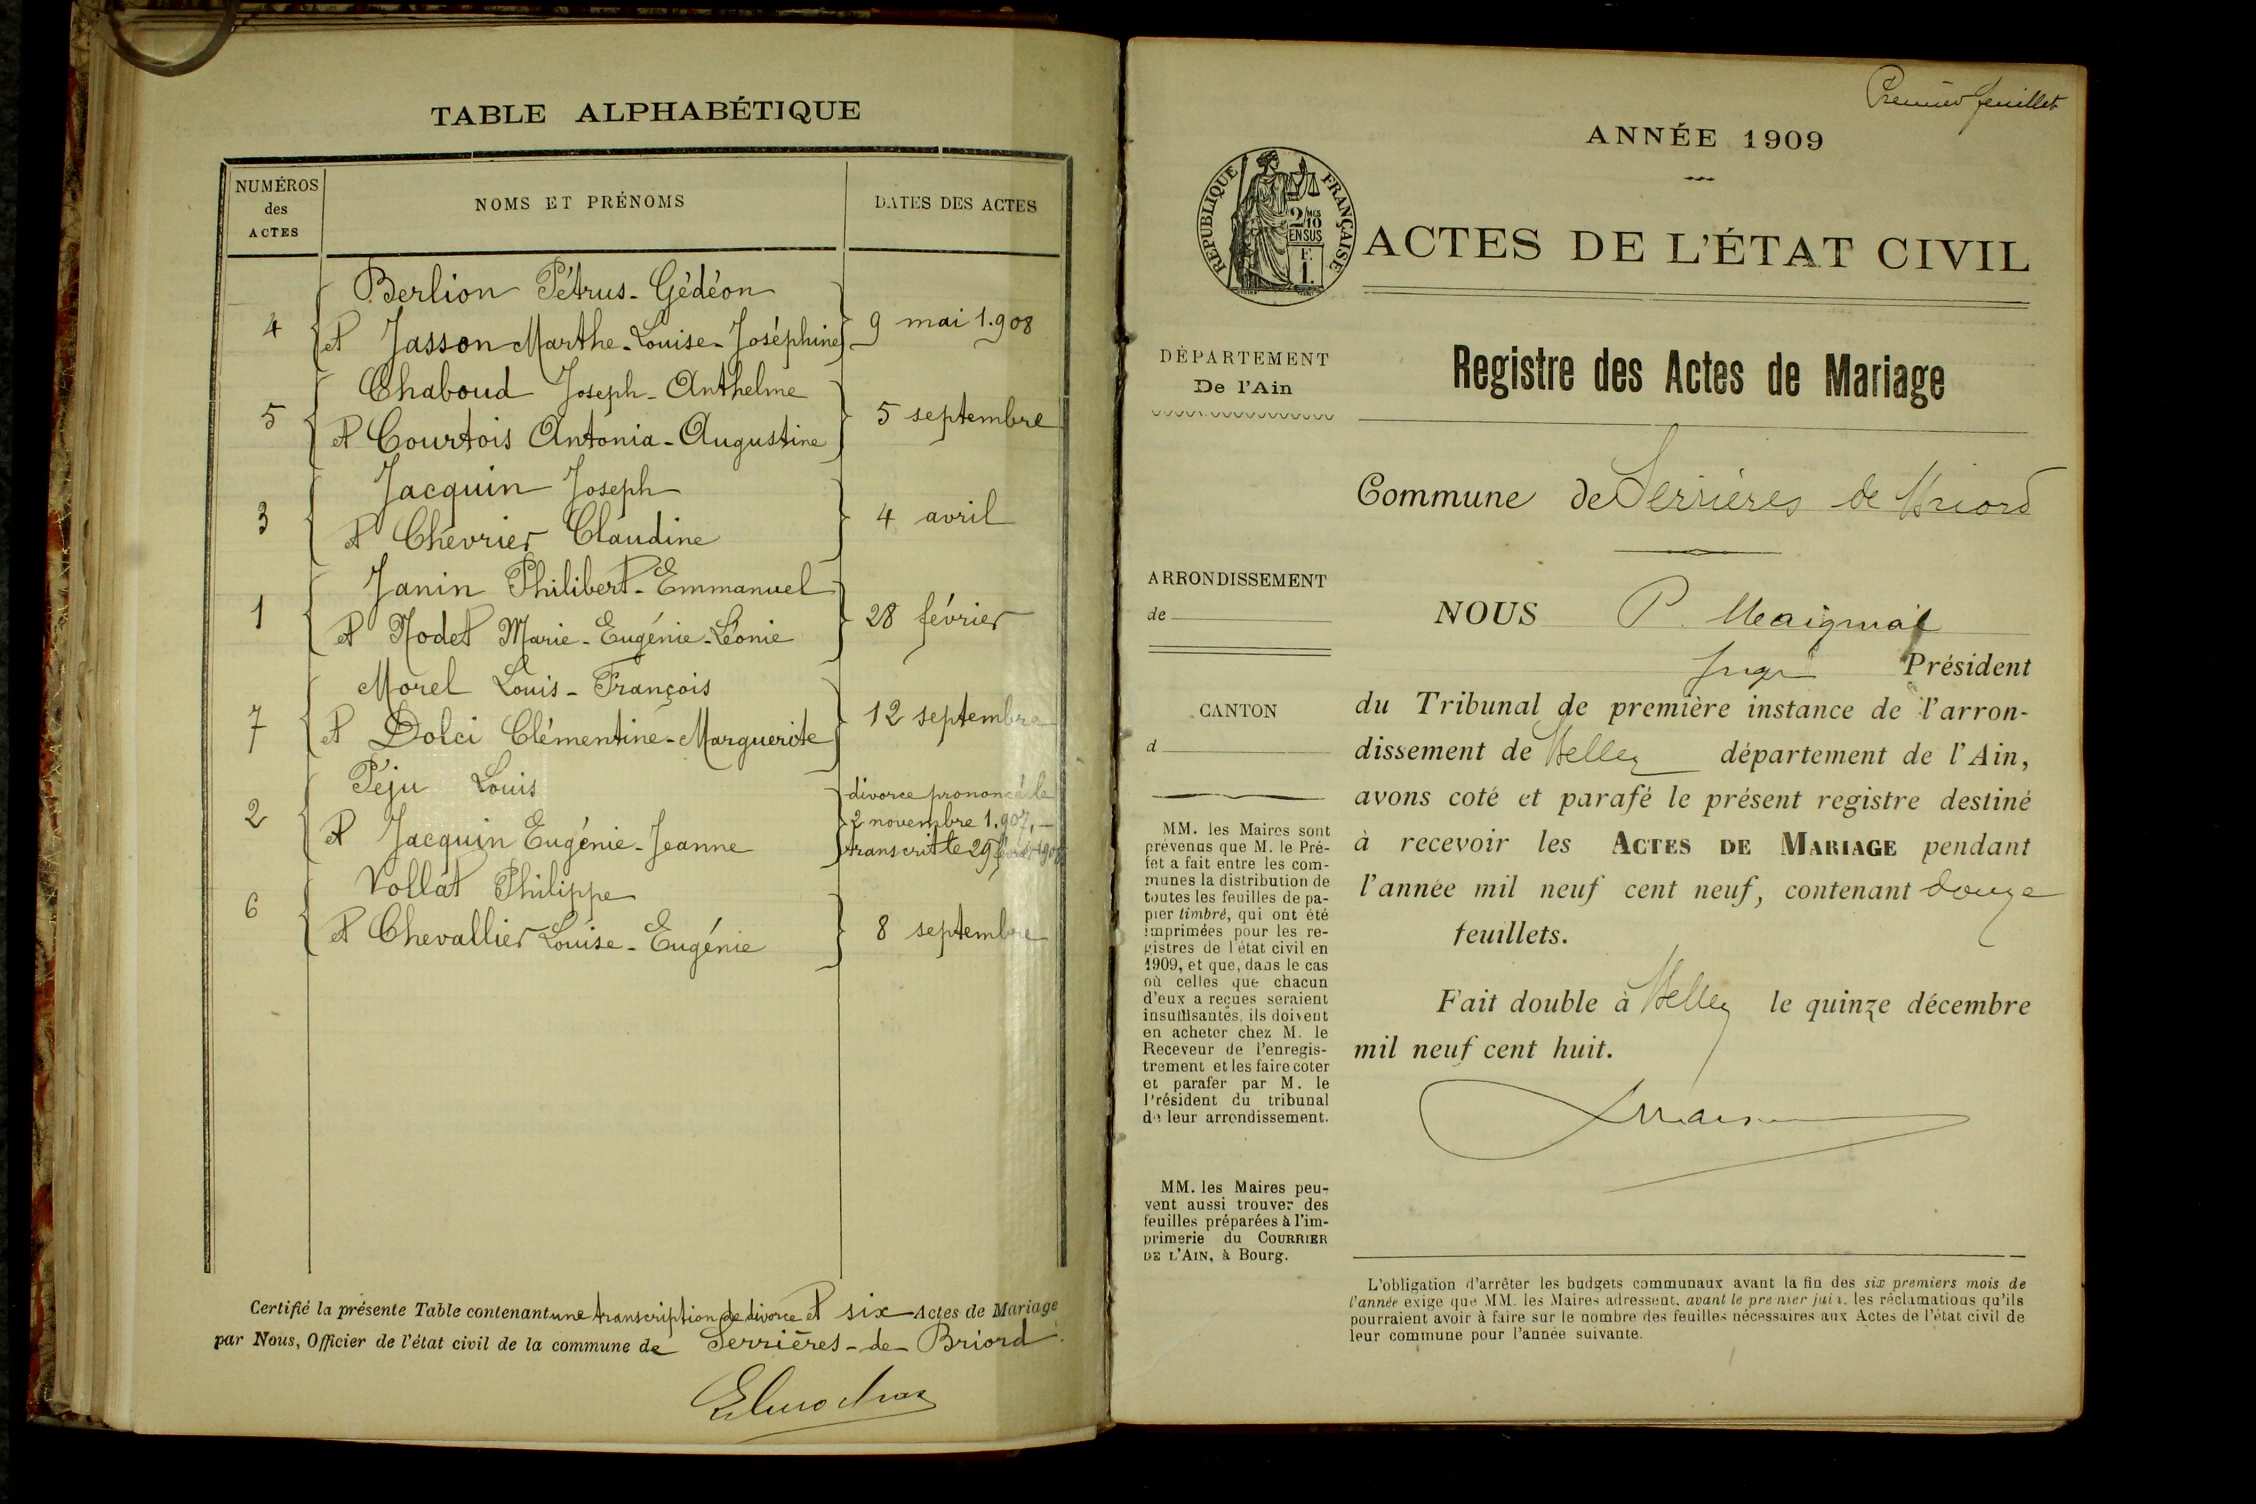 TABLE ALPHABÉTIQUE
NUMÉROS
des
ACTES
NOMS ET PRÉNOMS
DATES DES ACTES
Berlion Pétrus-Gédéon
4 et Jasson Marthe-Louise-Joséphine 9 mai 1.908
Chaboud Joseph-Anthelme
5 et Courtois Antonia-Augustine 5 septembre
Jacquin Joseph
3 et Chevrier Claudine 4 avril
Janin Philibert-Emmanuel
1 et Nodet Marie-Eugénie-Léonie 28 février
Morel Louis-François
7 et Dolci Clémentine-Marguerite 12 septembre
Péju Louis
2 et Jacquin Eugénie-Jeanne
divorce prononcé le
2 novembre 1.907,-
transcrit le 29 février 1908
Vollat Philippe
6 et Chevallier Louise-Eugénie 8 septembre
Certifié la présente Table contenant une transcription de divorce et six Actes de Mariage
par Nous, Officier de l'état civil de la commune de Serrières-de-Briord.
Premier feuillet
ANNÉE 1909
RÉPUBLIQUE FRANÇAISE
2/10 MES
EN SUS
F.
1.
ACTES DE L'ÉTAT CIVIL
DÉPARTEMENT
De l'Ain
Registre des Actes de Mariage
Commune de Serrières de Briord
ARRONDISSEMENT
de
CANTON
d
MM. les Maires sont
prévenus que M. le Pré-
fet a fait entre les com-
munes la distribution de
toutes les feuilles de pa-
pier timbré, qui ont été
imprimées pour les re-
gistres de l'état civil en
1909, et que, dans le cas
où celles que chacun
d'eux a reçues seraient
insuffisantes, ils doivent
en acheter chez M. le
Receveur de l'enregis-
trement et les faire coter
et parafer par M. le
Président du tribunal
de leur arrondissement.
MM. les Maires peu-
vent aussi trouver des
feuilles préparées à l'im-
primerie du COURRIER
DE L'AIN, à Bourg.
NOUS P.
Juge Président
du Tribunal de première instance de l'arron-
dissement de Belley département de l'Ain,
avons coté et parafé le présent registre destiné
à recevoir les ACTES DE MARIAGE pendant
l'année mil neuf cent neuf, contenant douze
feuillets.
Fait double à Belley le quinze décembre
mil neuf cent huit.
L'obligation d'arrêter les budgets communaux avant la fin des six premiers mois de
l'année exige que MM. les Maires adressent, avant le premier juin, les réclamations qu'ils
pourraient avoir à faire sur le nombre des feuilles nécessaires aux Actes de l'état civil de
leur commune pour l'année suivante.